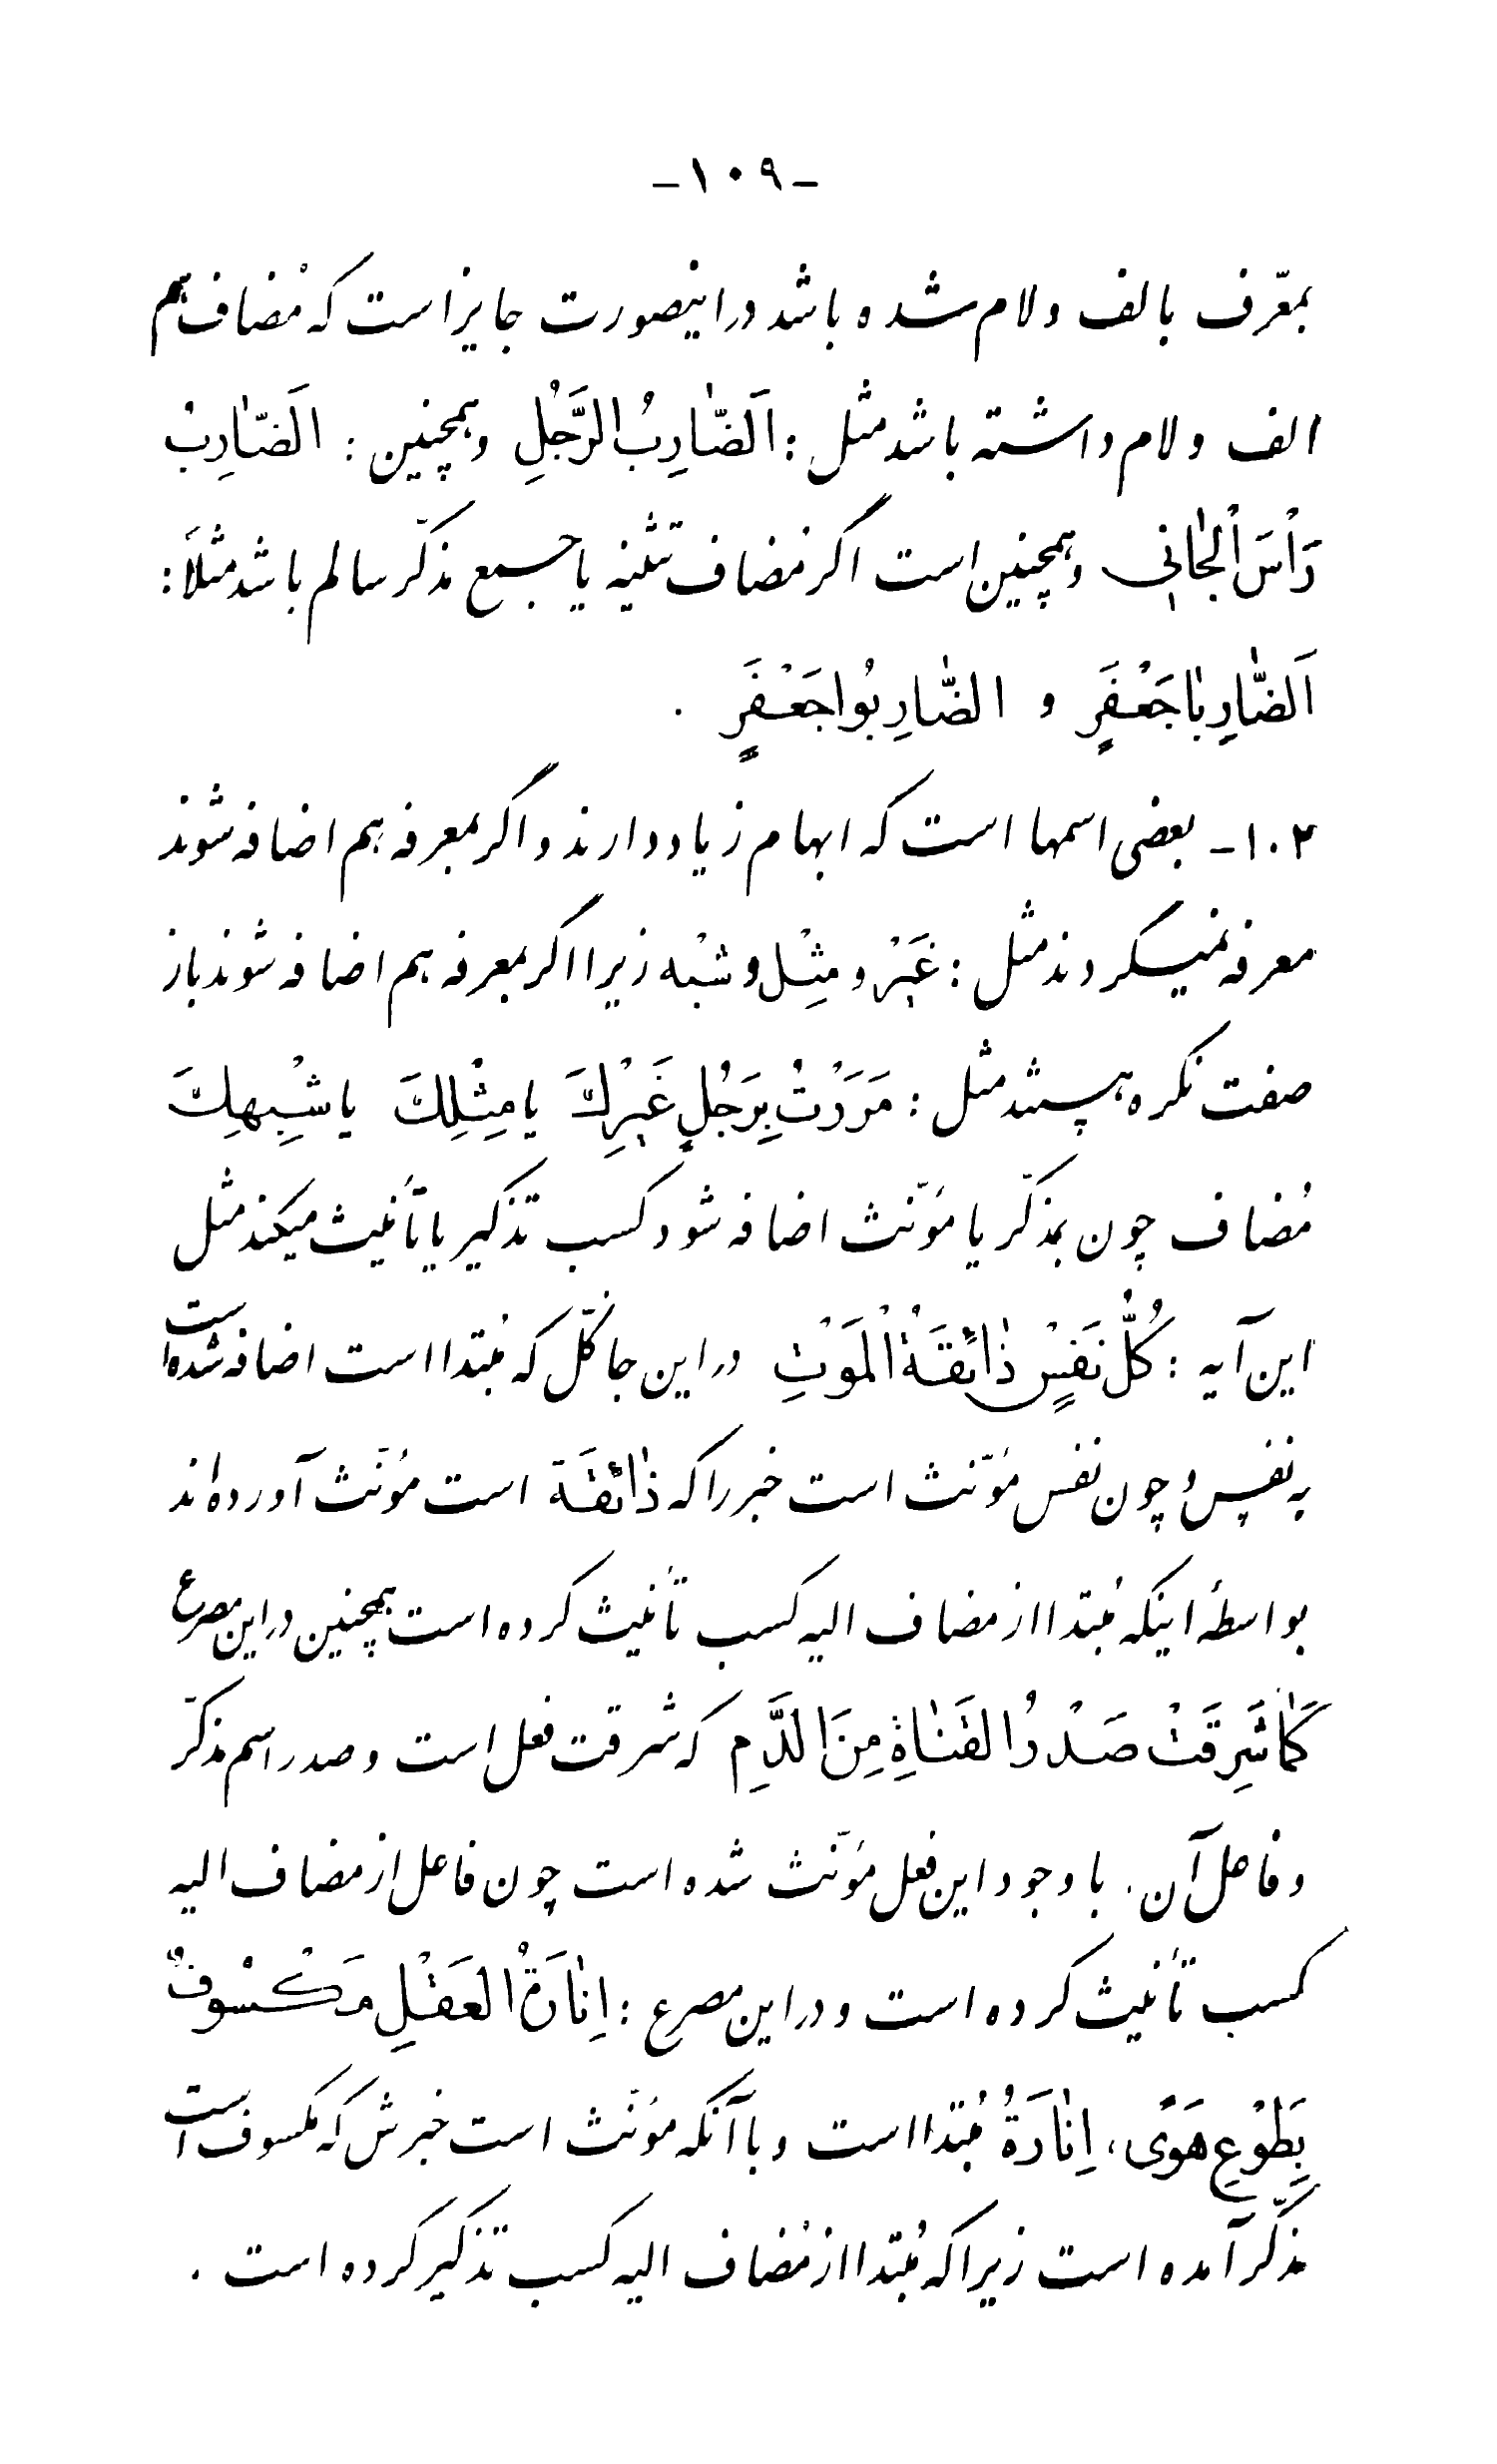 -۱۰۹-
بمعّرف بالف ولام شده باشد در اینصورت جایز است که مُضاف هم
الف ولام داشته باشد مثل : اَلضّٰارِبُ الرَّجُلِ وهمچنین : الَضّٰارِبُ
رَأْسَ الْجٰانِي وهمچنین است اگر مُضاف تثنیه یا جمع مذکّر سالم باشد مثلاً :
اَلضّٰارِبٰا جَعْفَرٍ و الضّٰارِبُوا جَعْفَرٍ .
۱۰۲- بعضی اسمها است که ابهام زیاد دارند و اگر بمعرفه هم اضافه شوند
معرفه نمیگردند مثل : غَیْر و مِثْل و شبْه زیرا اگر بمعرفه هم اضافه شوند باز
صفت نکره هستند مثل : مَرَرْتُ بِرَجُلٍ غَیْرِكَ یا مِثْلِكَ یا شِبْهِكَ
مُضاف چون بمذکّر یا مؤنّث اضافه شود کسب تذکیر یا تأنیث میکند مثل
این آیه : کُلُّ نَفْسٍ ذٰائِقَةُ الْمَوْتِ در این جا کُلّ که مُبتدا است اضافه شده است
به نفس و چون نفس مؤنّث است خبر را که ذٰائِقَة است مؤنّث آورده‌اند
بواسطهٔ اینکه مُبتدا از مضاف الیه کسب تأنیث کرده است همچنین در این مصرع
کَمٰا شَرِقَتْ صَدْرُ القَنٰاةِ مِنَ الدَّمِ که شرقت فعل است و صدر اسم مذکّر
و فاعل آن . با وجود این فعل مؤنّث شده است چون فاعل از مضاف الیه
کسب تأنیث کرده است و در این مصرع : اِنٰارَةُ العَقْلِ مَکْسُوفٌ
بِطَوْعِ هَویً ، اِنٰارَةُ مُبتدا است و با آنکه مؤنّث است خبرش که مکسوف است
مذکّر آمده است زیرا که مُبتدا از مُضاف الیه کسب تذکیر کرده است .